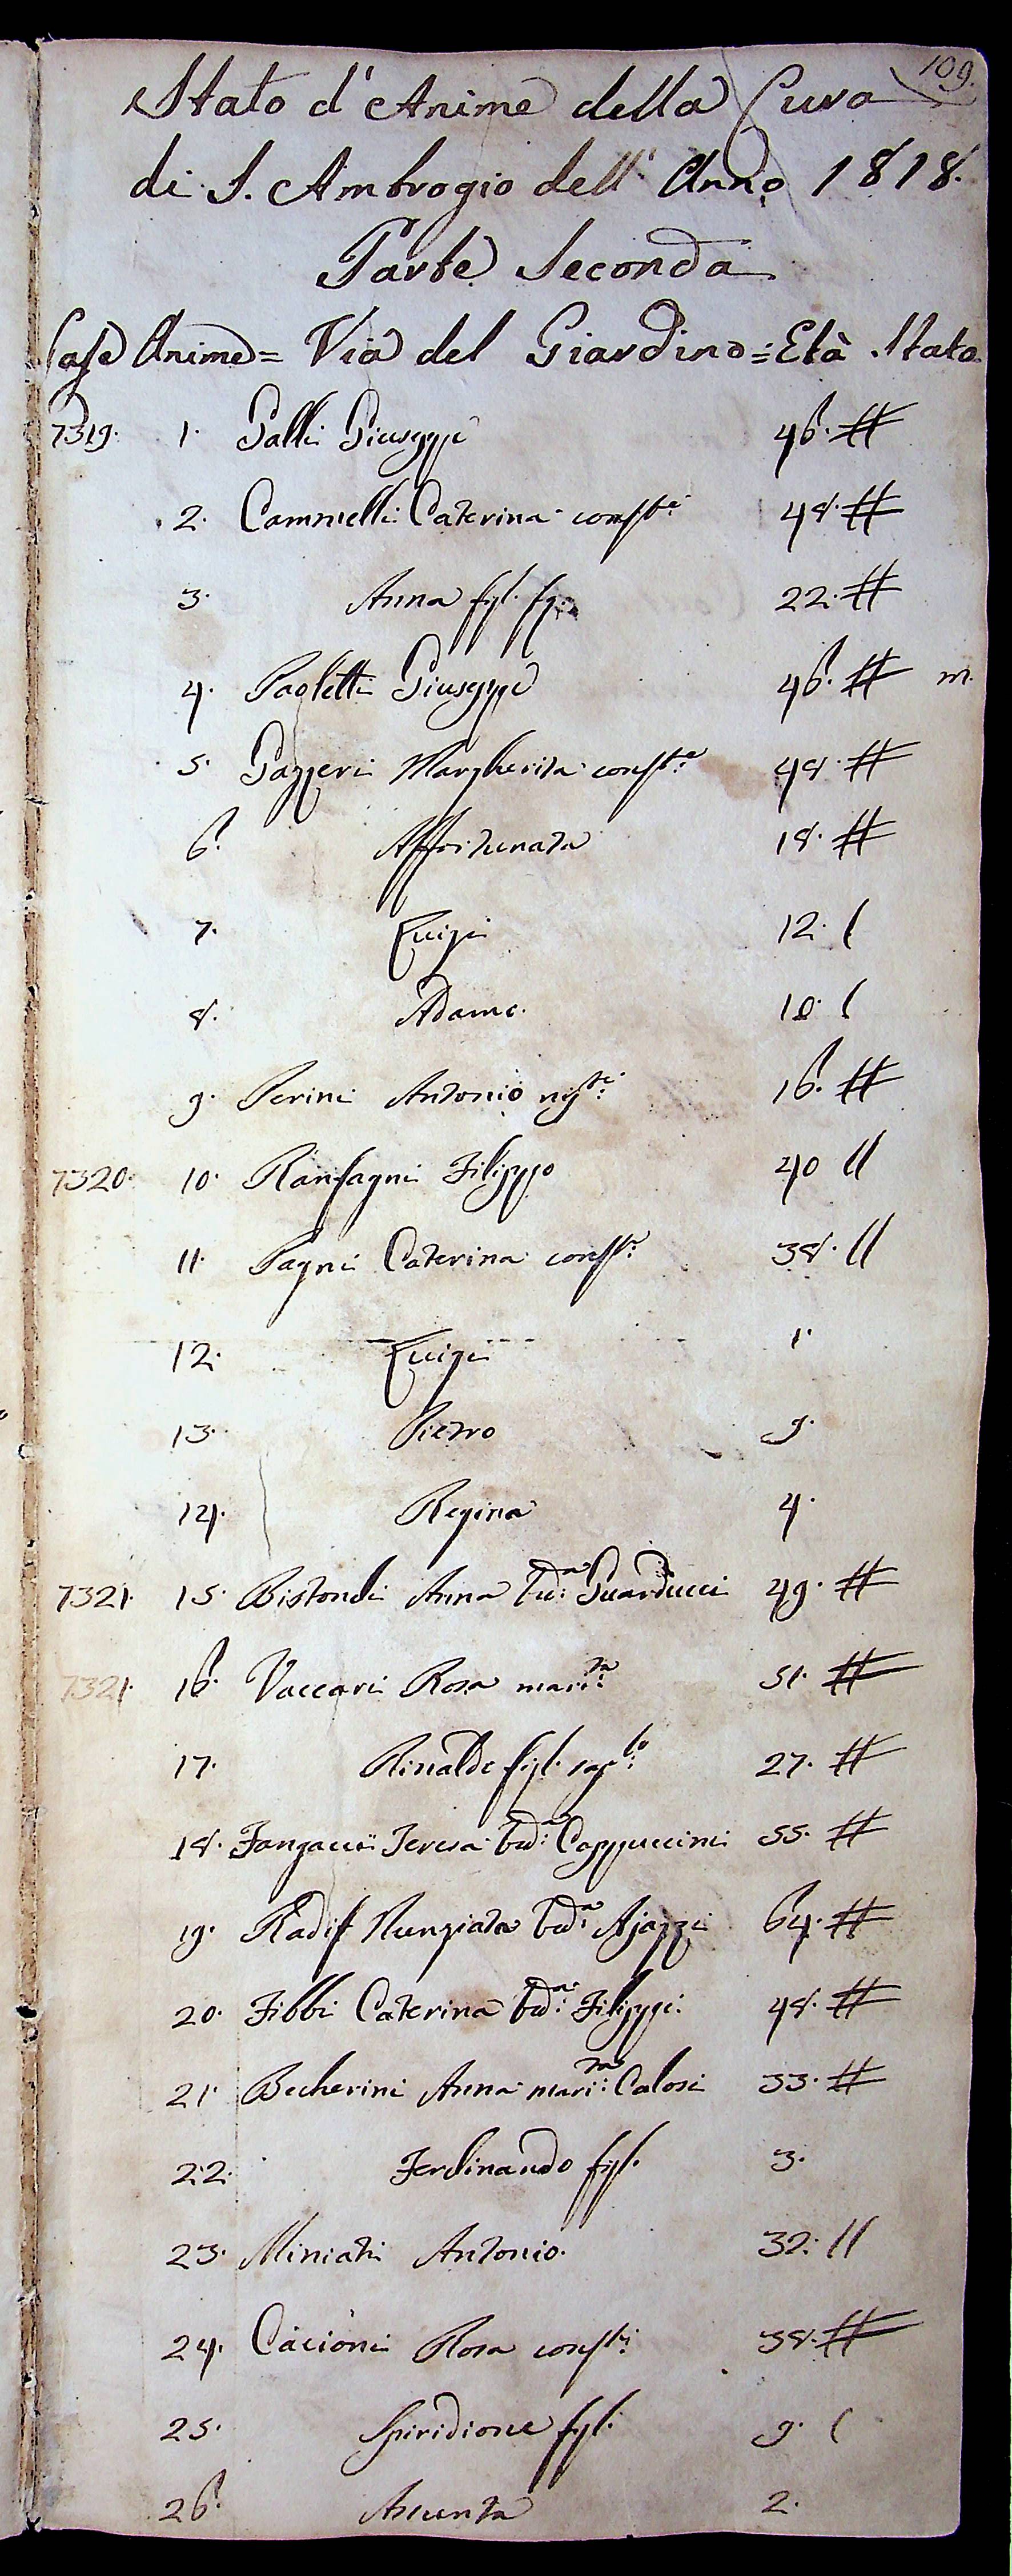 109.
Stato d'Anime della Cura
di S. Ambrogio dell' Anno 1818.
Parte Seconda
Case Anime = Via del Giardino = Età Stato
7319. 1. Galli Giuseppe 46. #
2. Cammelli Caterina conste 48. #
3. Anna figl. 22. #
4. Paoletti Giuseppe 46. # m.
5. Gazzeri Margherita conste 48. #
6. Affortunata 18. #
7. Luigi 12. (
8. Adamo. 10. (
9. Perini Antonio nipte 16. #
7320. 10. Ranfagni Filippo 40 //
11. Pagni Caterina conste 38. //
12. Luigi 1.
13. Pietro 9.
14. Regina 4.
7321. 15. Bistondi Anna Vda: Guarducci 49. #
7321. 16. Vaccari Rosa marita 51. #
17. Rinaldo figl. 27. #
18. Fangacci Teresa Vda: Cappuccini 55. #
19. Radif Nunziata Vda: Ajazzi 64. #
20. Fibbi Caterina Vda: Filippi. 48. #
21. Becherini Anna marita: Calosi 33. #
22. Ferdinando figl. 3.
23. Miniati Antonio. 32. //
24. Cacioni Rosa conste 38. #
25. Spiridione figl. 9. (
26. Assunta 2.